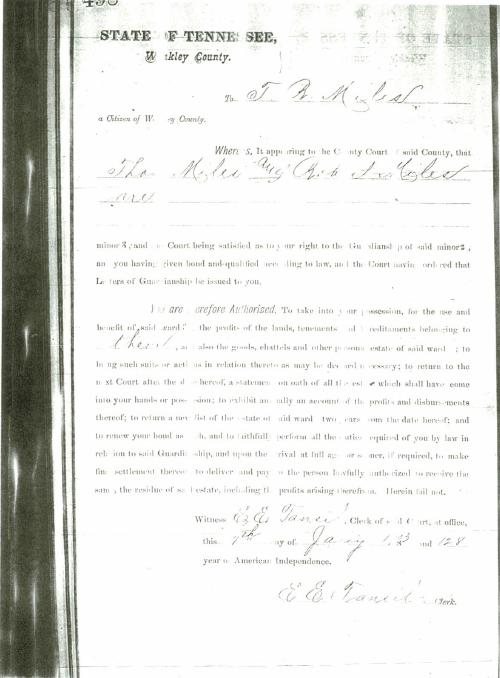 STATE OF TENNESSEE,
Weakley County.
To T. B. Miles
a Citizen of W ey County.
Where s, It app ring to the C nty Court said County, that
Tho Myles Rob Miles
are
minors, and e Court being satisfied as to y ur right to the Gu dianship of said minors,
an you having given bond and qualified cc ding to law, and the Court having ordered that
Le ers of Gua ianship be issued to you,
Y are erefore Authorised, To take into y ur possession, for the use and
benefit of said ward s the profits of the lands, tenements d reditaments belonging to
them, a also the goods, chattels and other perso estate of said ward ; to
bring such suits or acti ns in relation thereto as may be deemed n cessary; to return to the
n xt Court after the d hereof, a statement on oath of all the est e which shall have come
into your hands or pos sion; to exhibit an ally an account of the profits and disbursements
thereof; to return a new list of the estate of aid ward two years om the date hereof; and
to renew your bond as h, and to faithfully perform all the duties required of you by law in
relation to said Guardi ship, and upon the rrival at full age or s ner, if required, to make
fin settlement thereof to deliver and pay o the person lawfully authorized to receive the
same, the residue of sa estate, including th profits arising therefrom. Herein fail not.
Witness E. E. Tansil, Clerk of s d C rt, at office,
this 7th ay of Jany and 128
year o American Independence.
E E Tansil Clerk.